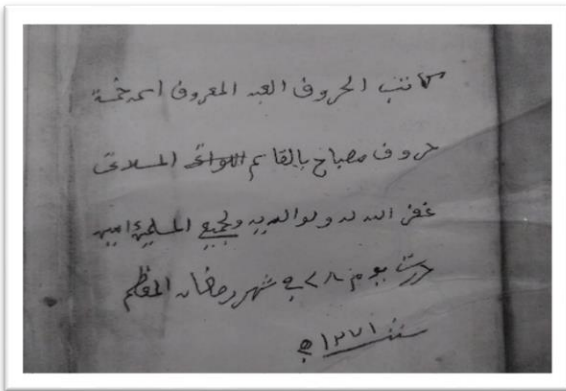 كاتب الحروف العبد المعروف اسمه خمسة
حروف مصباح بالقاسم اللواتى المسلاتى
غفر الله له ولوالديه ولجميع المسلمين امين
يوم ٢٨ في شهر رمضان المعظم
سنة ١٢٧١ ھ